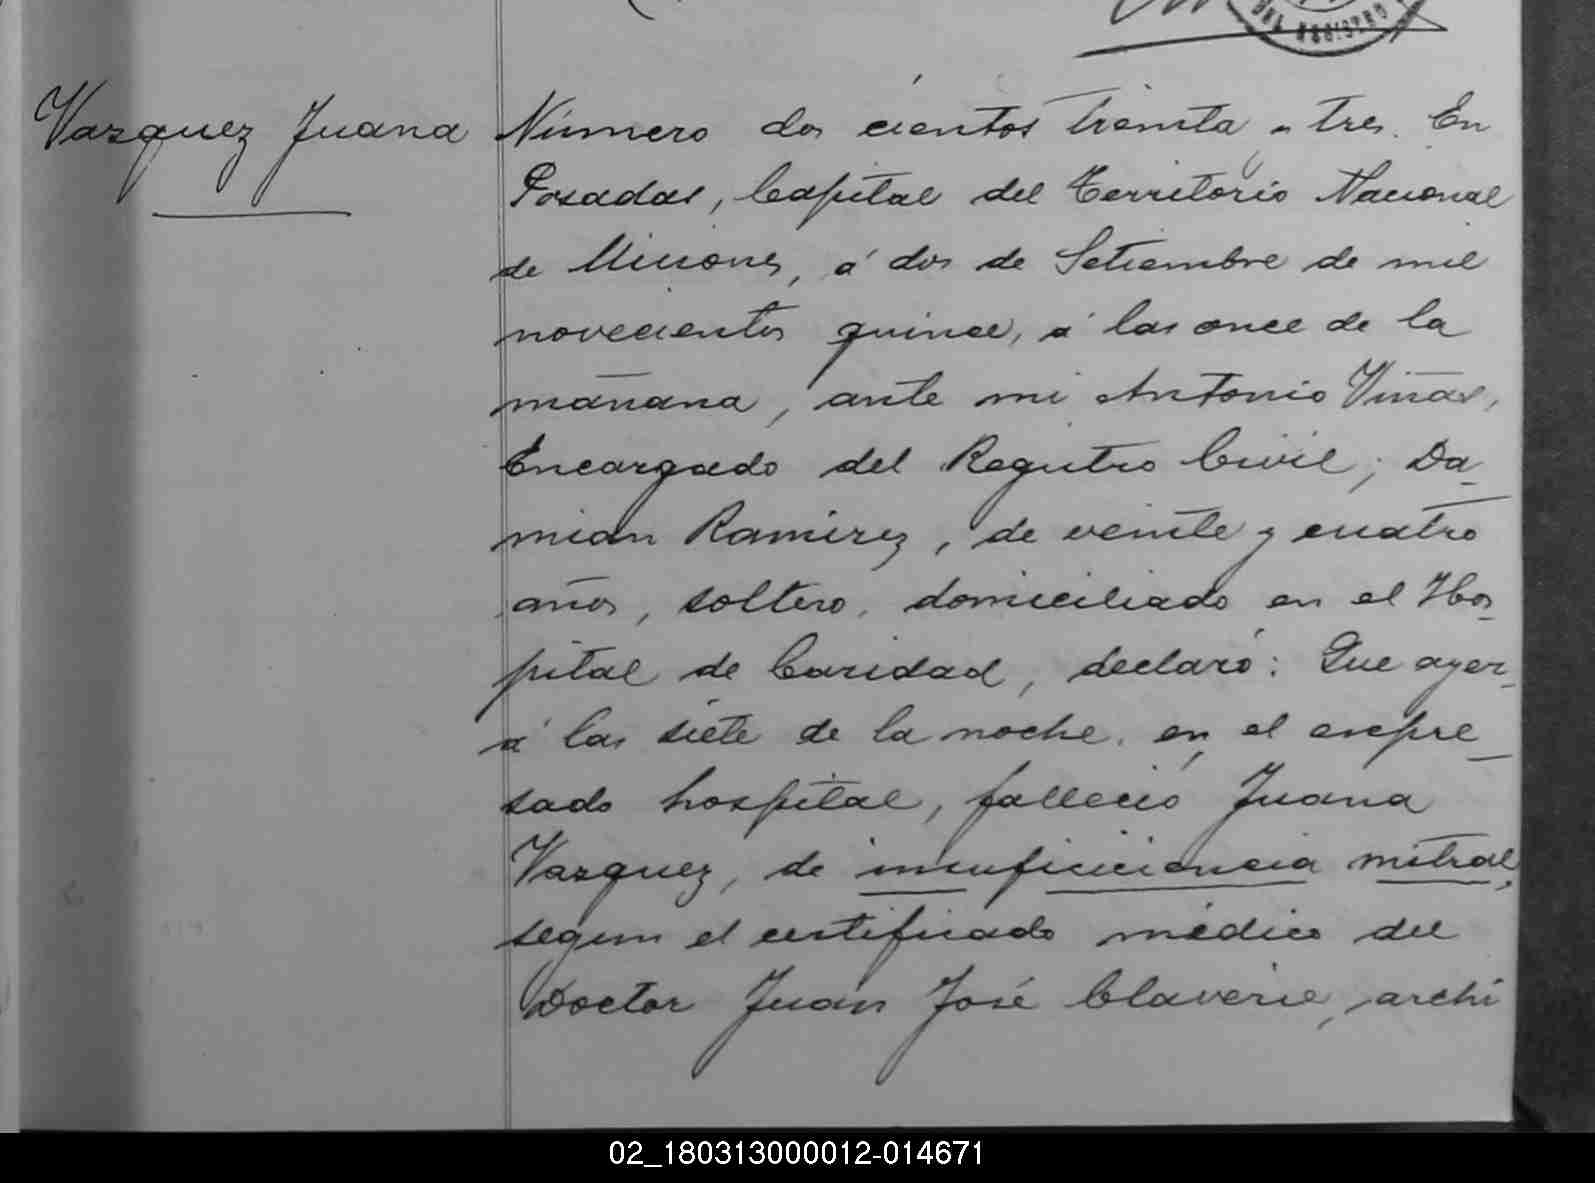 Vazquez Juana
Número dos cientos treinta y tres. En
Posadas, Capital del Territorio Nacional
de Misiones, á dos de Setiembre de mil
novecientos quince, á las once de la
mañana, ante mi Antonio Viñas,
Encargado del Registro Civil; Da-
mian Ramirez, de veinte y cuatro
años, soltero, domiciliado en el Hos-
pital de Caridad, declaró: Que ayer
á las siete de la noche, en el espre-
sado hospital, falleció Juana
Vazquez, de insuficiciencia mitral,
segun el certificado médico del
Doctor Juan José Claverie, archi
02_180313000012-014671